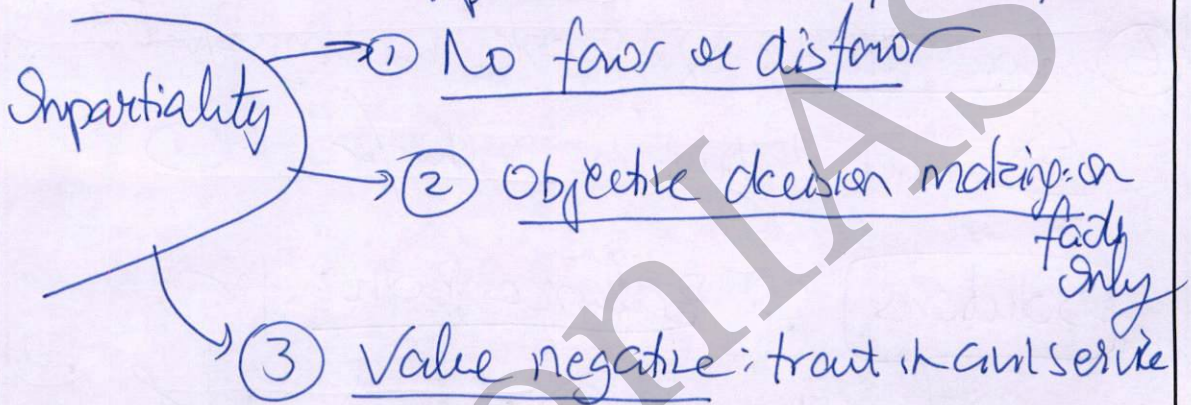 Impartiality
→ ① No favor or disfavor
→ ② Objective decision making: on
facts
only
→ ③ Value negative: trait in civil service
onIAS